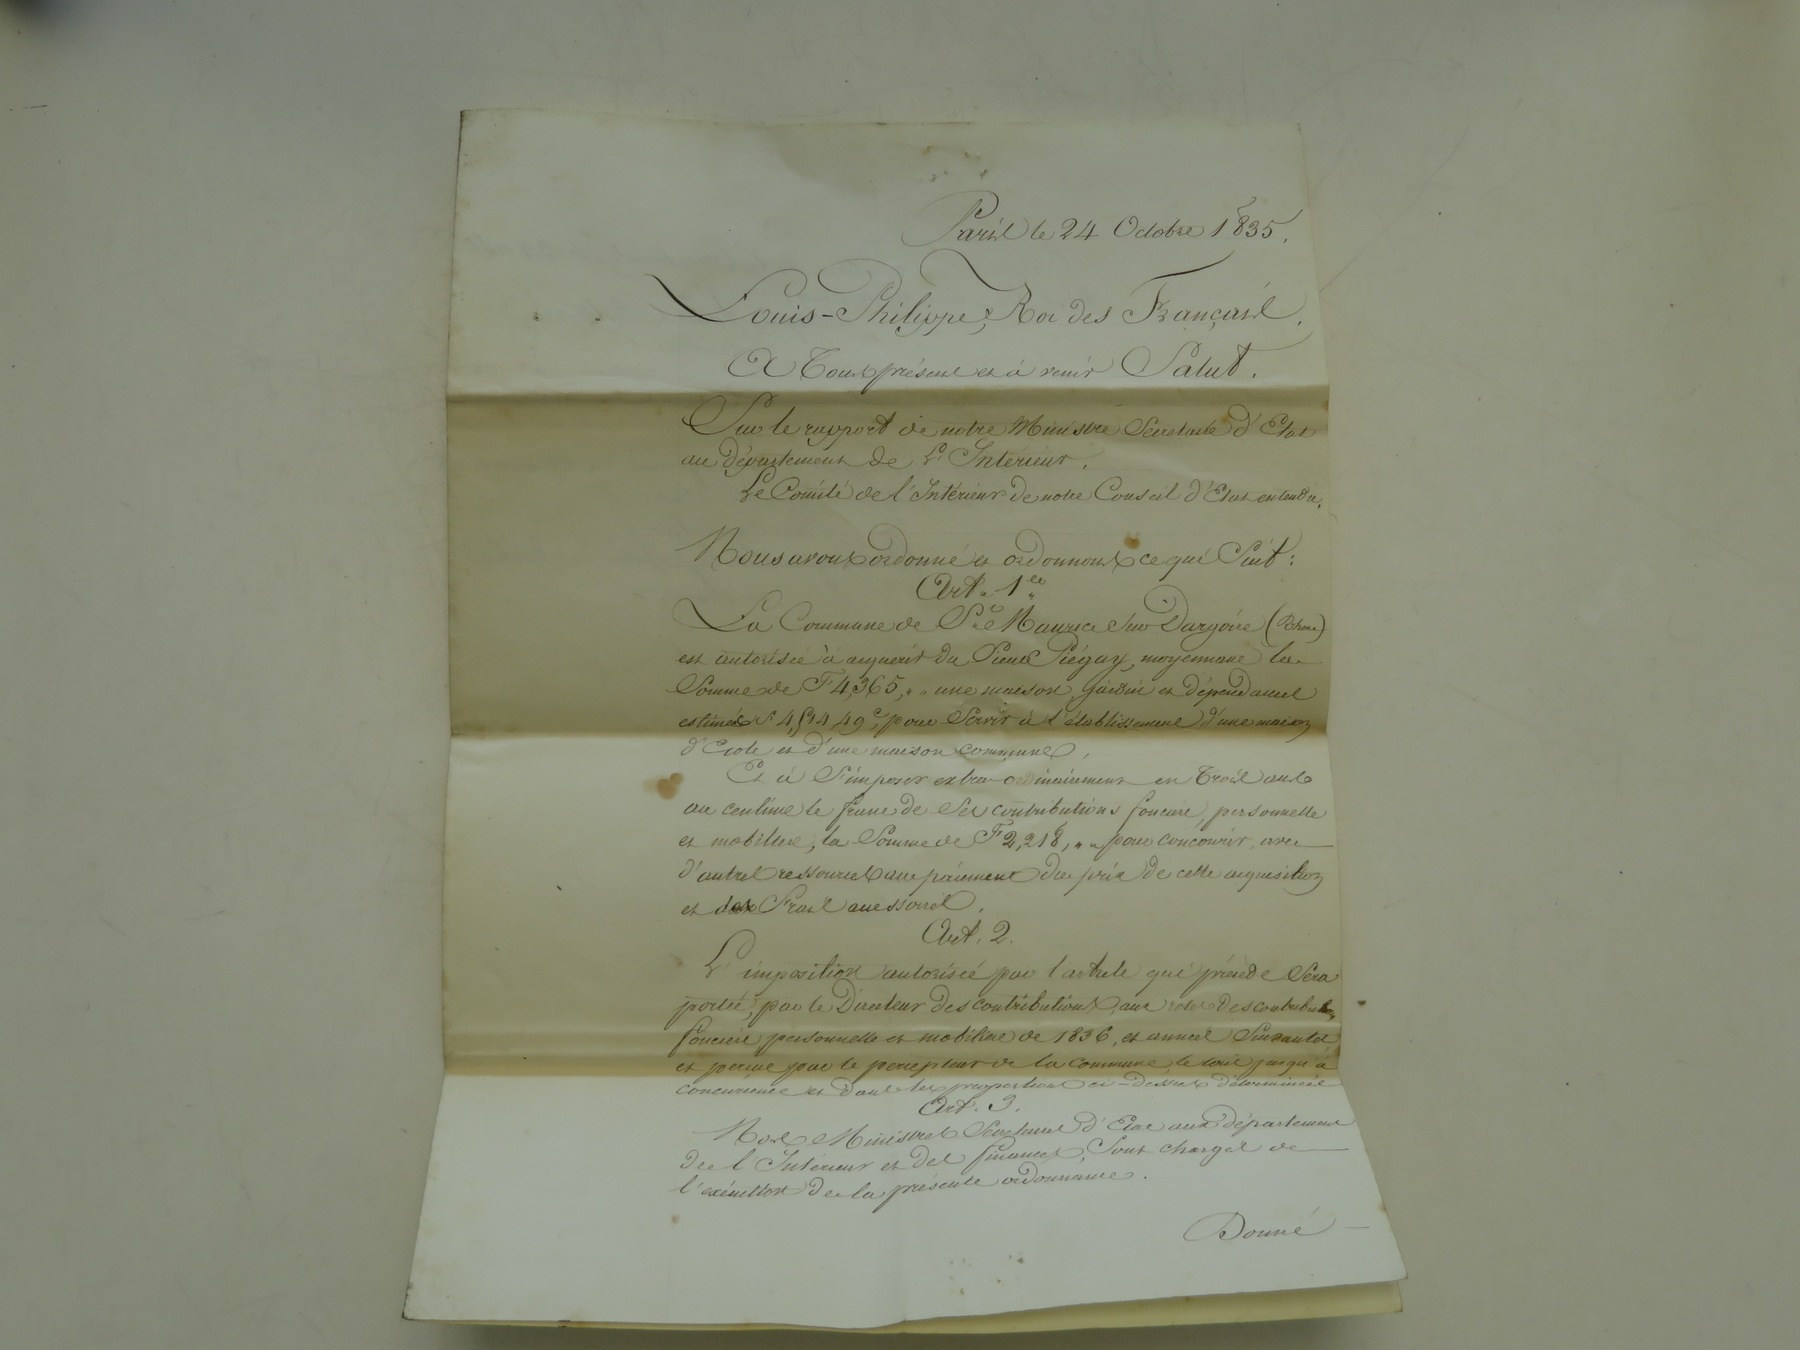 Paris le 24 Octobre 1835.
Louis-Philippe, Roi des Français.
A Tous présens et à venir Salut.
Sur le rapport de notre Ministre Secretaire d'Etat
au département de L'Intérieur.
Le Comité de l'Intérieur de notre Conseil d'Etat entendu,
Nous avons ordonné et ordonnons ce qui Suit:
Art. 1er
La Commune de St Maurice Sur Dargoire (Rhône)
est autorisée à acquérir du Sieur Piégay, moyennant la
Somme de F 4,365, " " une maison, jardin et dépendances
estimés pour Servir à l'établissement d'une maison
d'Ecole et d'une maison commune,
Et à S'imposer extraordinairement en Trois ans
au centime le franc de Ses contributions foncière, personnelle
et mobilière, la Somme de F 2,218, " " pour concourir, avec
d'autres ressources au paiement du prix de cette acquisition
et des Frais accessoires.
Art. 2.
L'imposition autorisée par l'article qui précède Sera
portée, par le Directeur des contributions, aux rôles des contributions
foncière personnelle et mobilière de 1836, et années Suivantes
et perçue par le percepteur de la commune le tout jusqu'à
concurrence et dans les proportions ci-dessus déterminées
Art. 3.
Nos Ministres Secrétaires d'Etat aux départements
de l'Intérieur et des finances, Sont chargés de
l'exécution de la présente ordonnance.
Donné